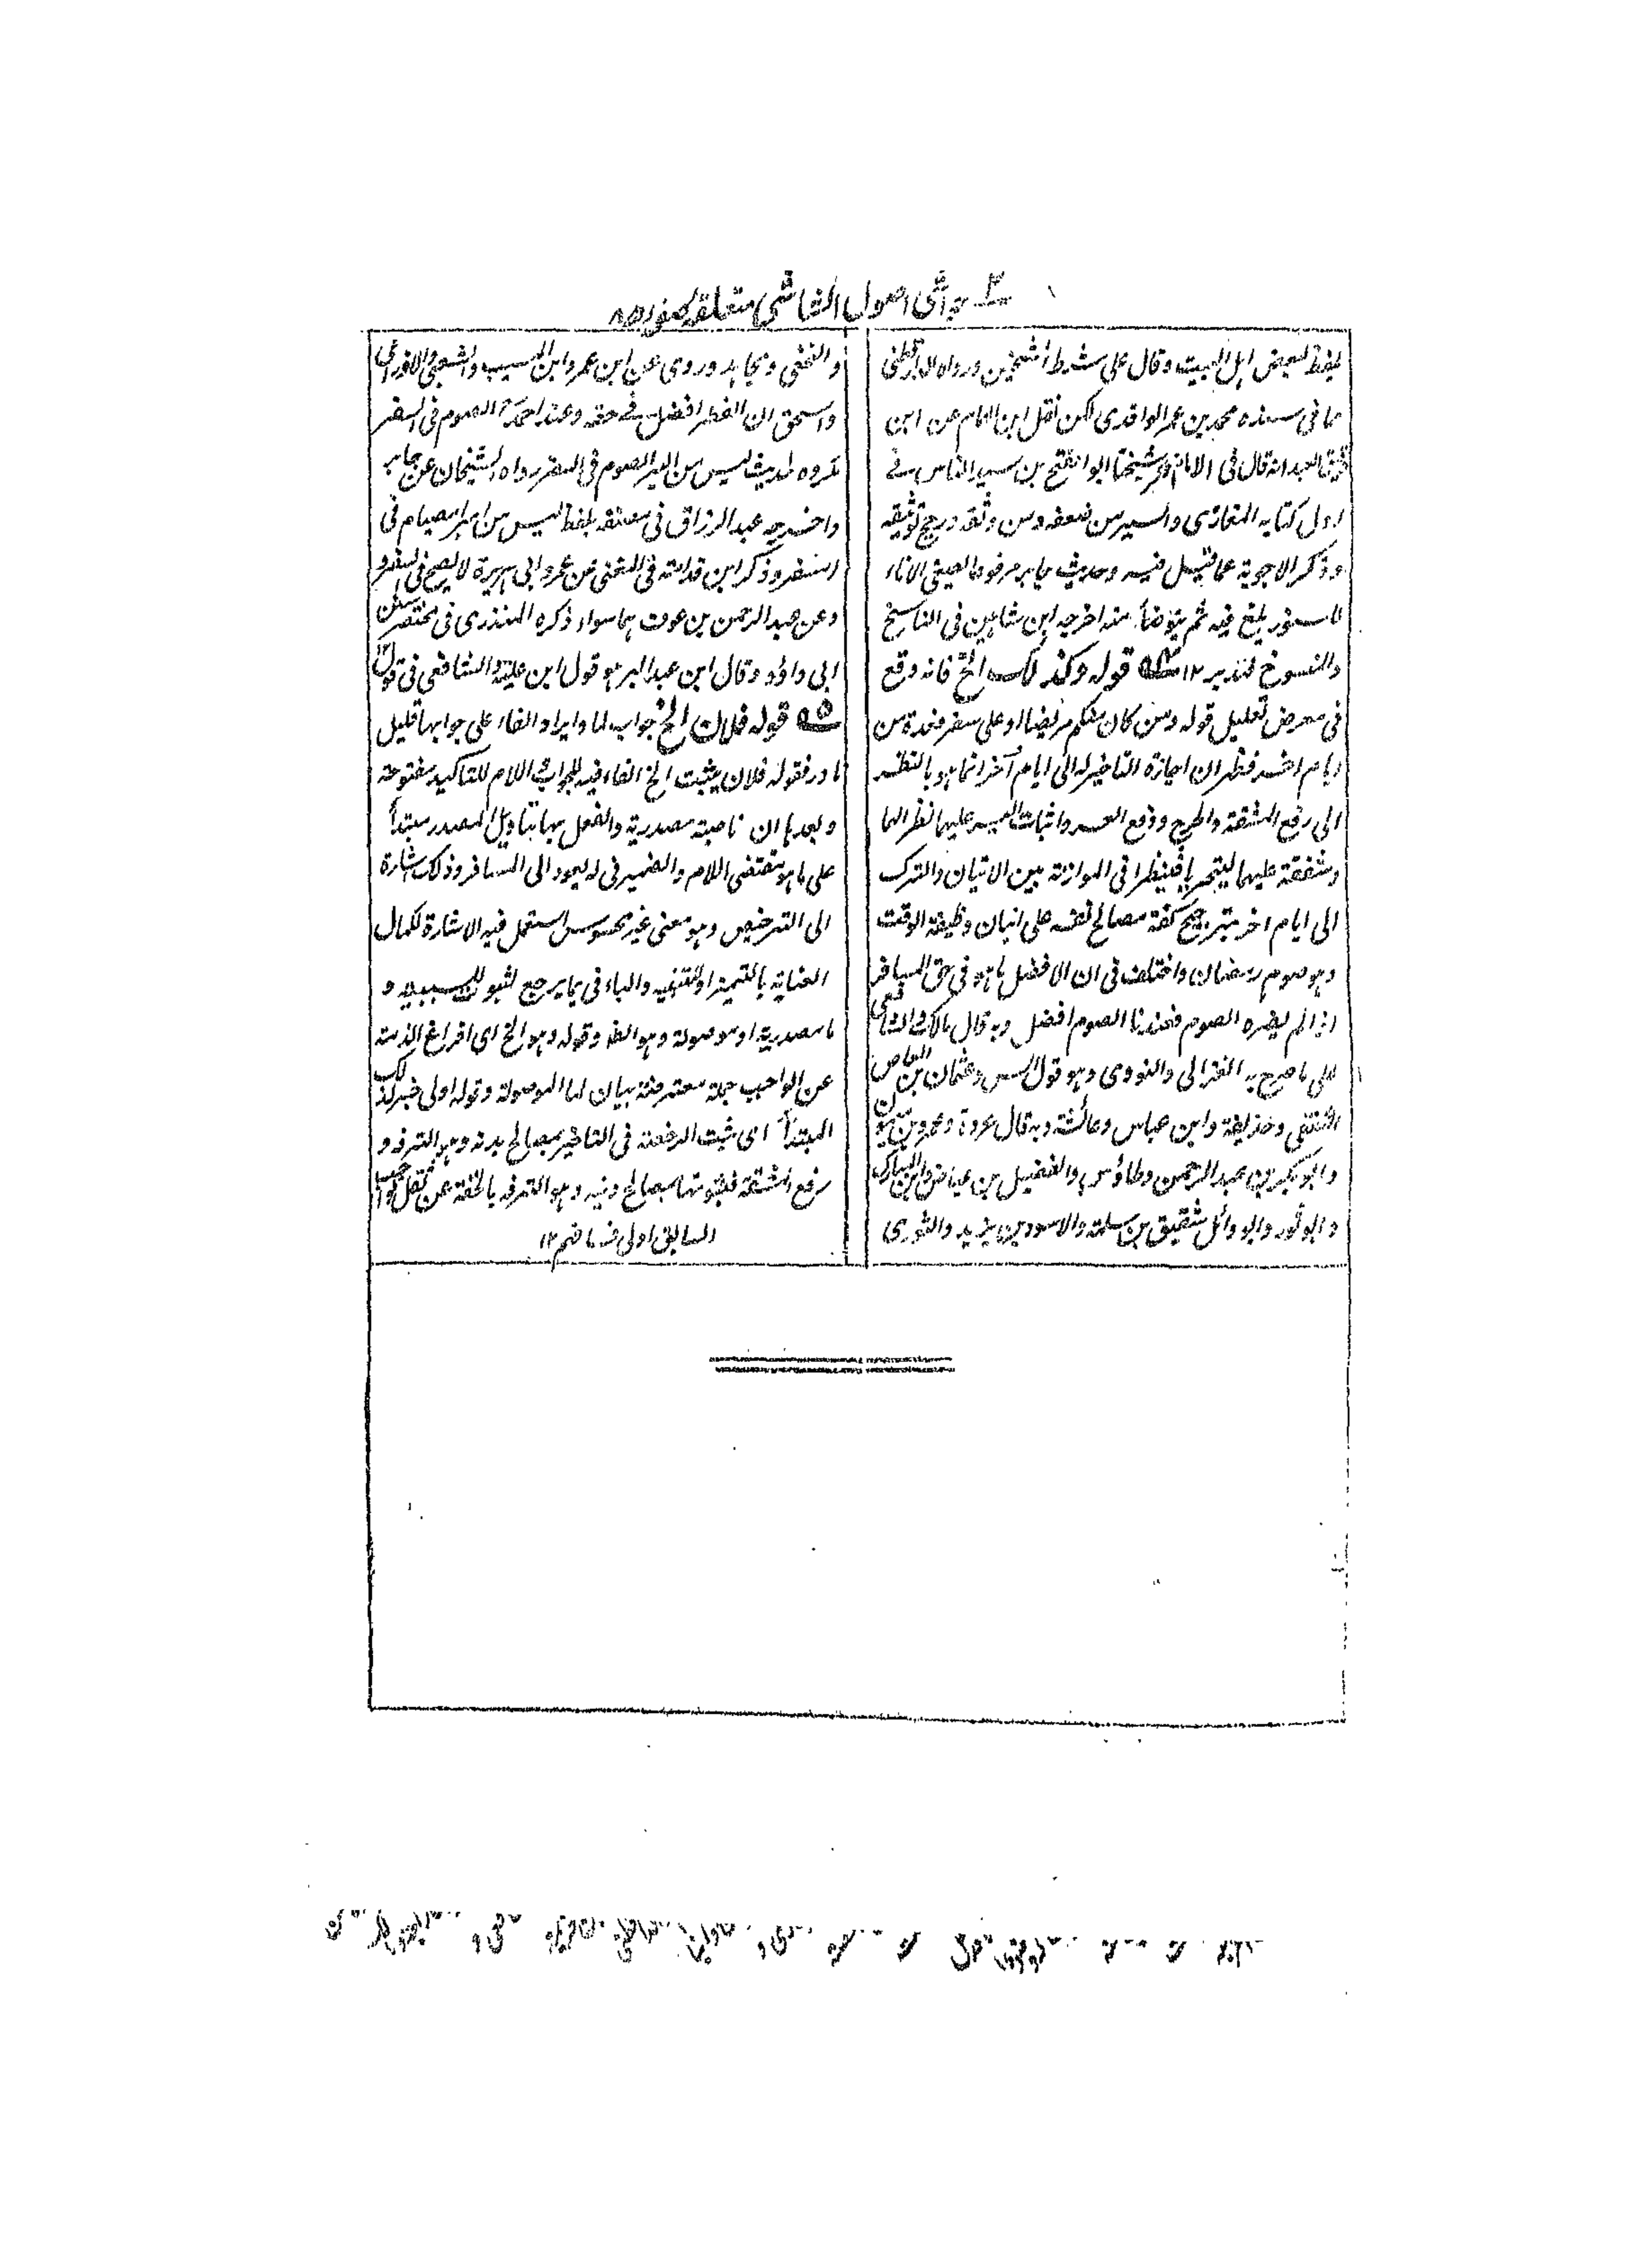 حواشی اصول الشاشی متعلقہ صفحہ ۸۵
بلفظ لبعض اہل البیت وقال علی شرط الشیخین ورواہ الدارقطنی
مما فی سندہ محمد بن عمر الواقدی لکن نقل ابن الہمام عن ابن
دقیق العید انہ قال فی الامام شیخنا ابو الفتح بن سید الناس فی
اول کتابہ المغازی والسیر من ضعفہ ومن وثقہ ورجح توثیقہ
وذکر الاجوبۃ عما قیل فیہ وحدیث جابر مرفوعا لصیغی الاناء
للسنور یلغ فیہ ثم یتوضأ منہ اخرجہ ابن شاہین فی الناسخ
والمنسوخ فتدبر ۱۲ قولہ وکذلک الخ فانہ وقع
فی معرض تعلیل قولہ ومن کان منکم مریضا او علی سفر فعدۃ من
ایام اخر فظہر ان اجازۃ التاخیر لہ الی ایام آخر انما ہو بالنظر
الی رفع المشقۃ والحرج ودفع العسر واثبات الیسر علیہما نظرا لہما
وشفقۃ علیہما فینظرا فی الموازنۃ بین الاتیان والترک
الی ایام اخر بترجیح کفۃ مصالح نفسہ علی اتیان وظیفۃ الوقت
وہو صوم رمضان واختلف فی ان الافضل ما ہو فی حق المسافر
اذا لم یضرہ الصوم فعندنا الصوم افضل وبہ قال مالک والشافعی
علی ما صرح بہ الغزالی والنووی وہو قول انس وعثمان بن العاص
الثقفی وحذیفۃ وابن عباس وعائشۃ وبہ قال عروۃ وعمرو بن میمون
وابو بکر بن عبد الرحمن وطاؤس والفضیل بن عیاض وابن المبارک
وابو ثور وابو وائل شقیق بن سلمۃ والاسود بن یزید والثوری
والنخعی ومجاہد وروی عن ابن عمر وابن المسیب والشعبی والاوزاعی
واسحق ان الفطر افضل فی حقہ وعند احمد الصوم فی السفر
مکروہ لحدیث لیس من البر الصوم فی السفر رواہ الشیخان عن جابر
واخرجہ عبد الرزاق فی مصنفہ بلفظ لیس من امبر امصیام فی
امسفر وذکر ابن قدامۃ فی المغنی عن عمر وابی ہریرۃ لا یصح فی السفر
وعن عبد الرحمن بن عوف ہما سواء ذکرہ المنذری فی مختصر سنن
ابی داؤد وقال ابن عبد البر ہو قول ابن علیۃ والشافعی فی قول
۵ قولہ فلان الخ جواب لما وایراد الفاء علی جوابہا قلیل
نادر فقولہ فلان یثبت الخ الفاء فیہ للجواب اللام للتاکید مفتوحۃ
وبعدہا ان ناصبۃ مصدریۃ والفعل بہا بتاویل المصدر مبتدأ
علی ما ہو مقتضی اللام والضمیر فی لہ یعود الی المسافر وذلک اشارۃ
الی الترخیص وہو معنی غیر محسوس استعمل فیہ الاشارۃ لکمال
العنایۃ بالتمییز او للتنبیہ والباء فی بما یرجع لثبوت للسببیۃ و
ما مصدریۃ او موصولۃ وہو الظ وقولہ وہو الخ ای افراغ الذمۃ
عن الواجب جملۃ معترضۃ بیان لما الموصولۃ وقولہ اولی خبر لذلک
المبتدأ ای ثبت الرخصۃ فی التاخیر بمصالح بدنہ وہو الترفہ و
رفع المشقۃ فثبوتہا بمصالح دینہ وہو الترفہ بالخفۃ عن
السابق اولی فافہم ۱۲